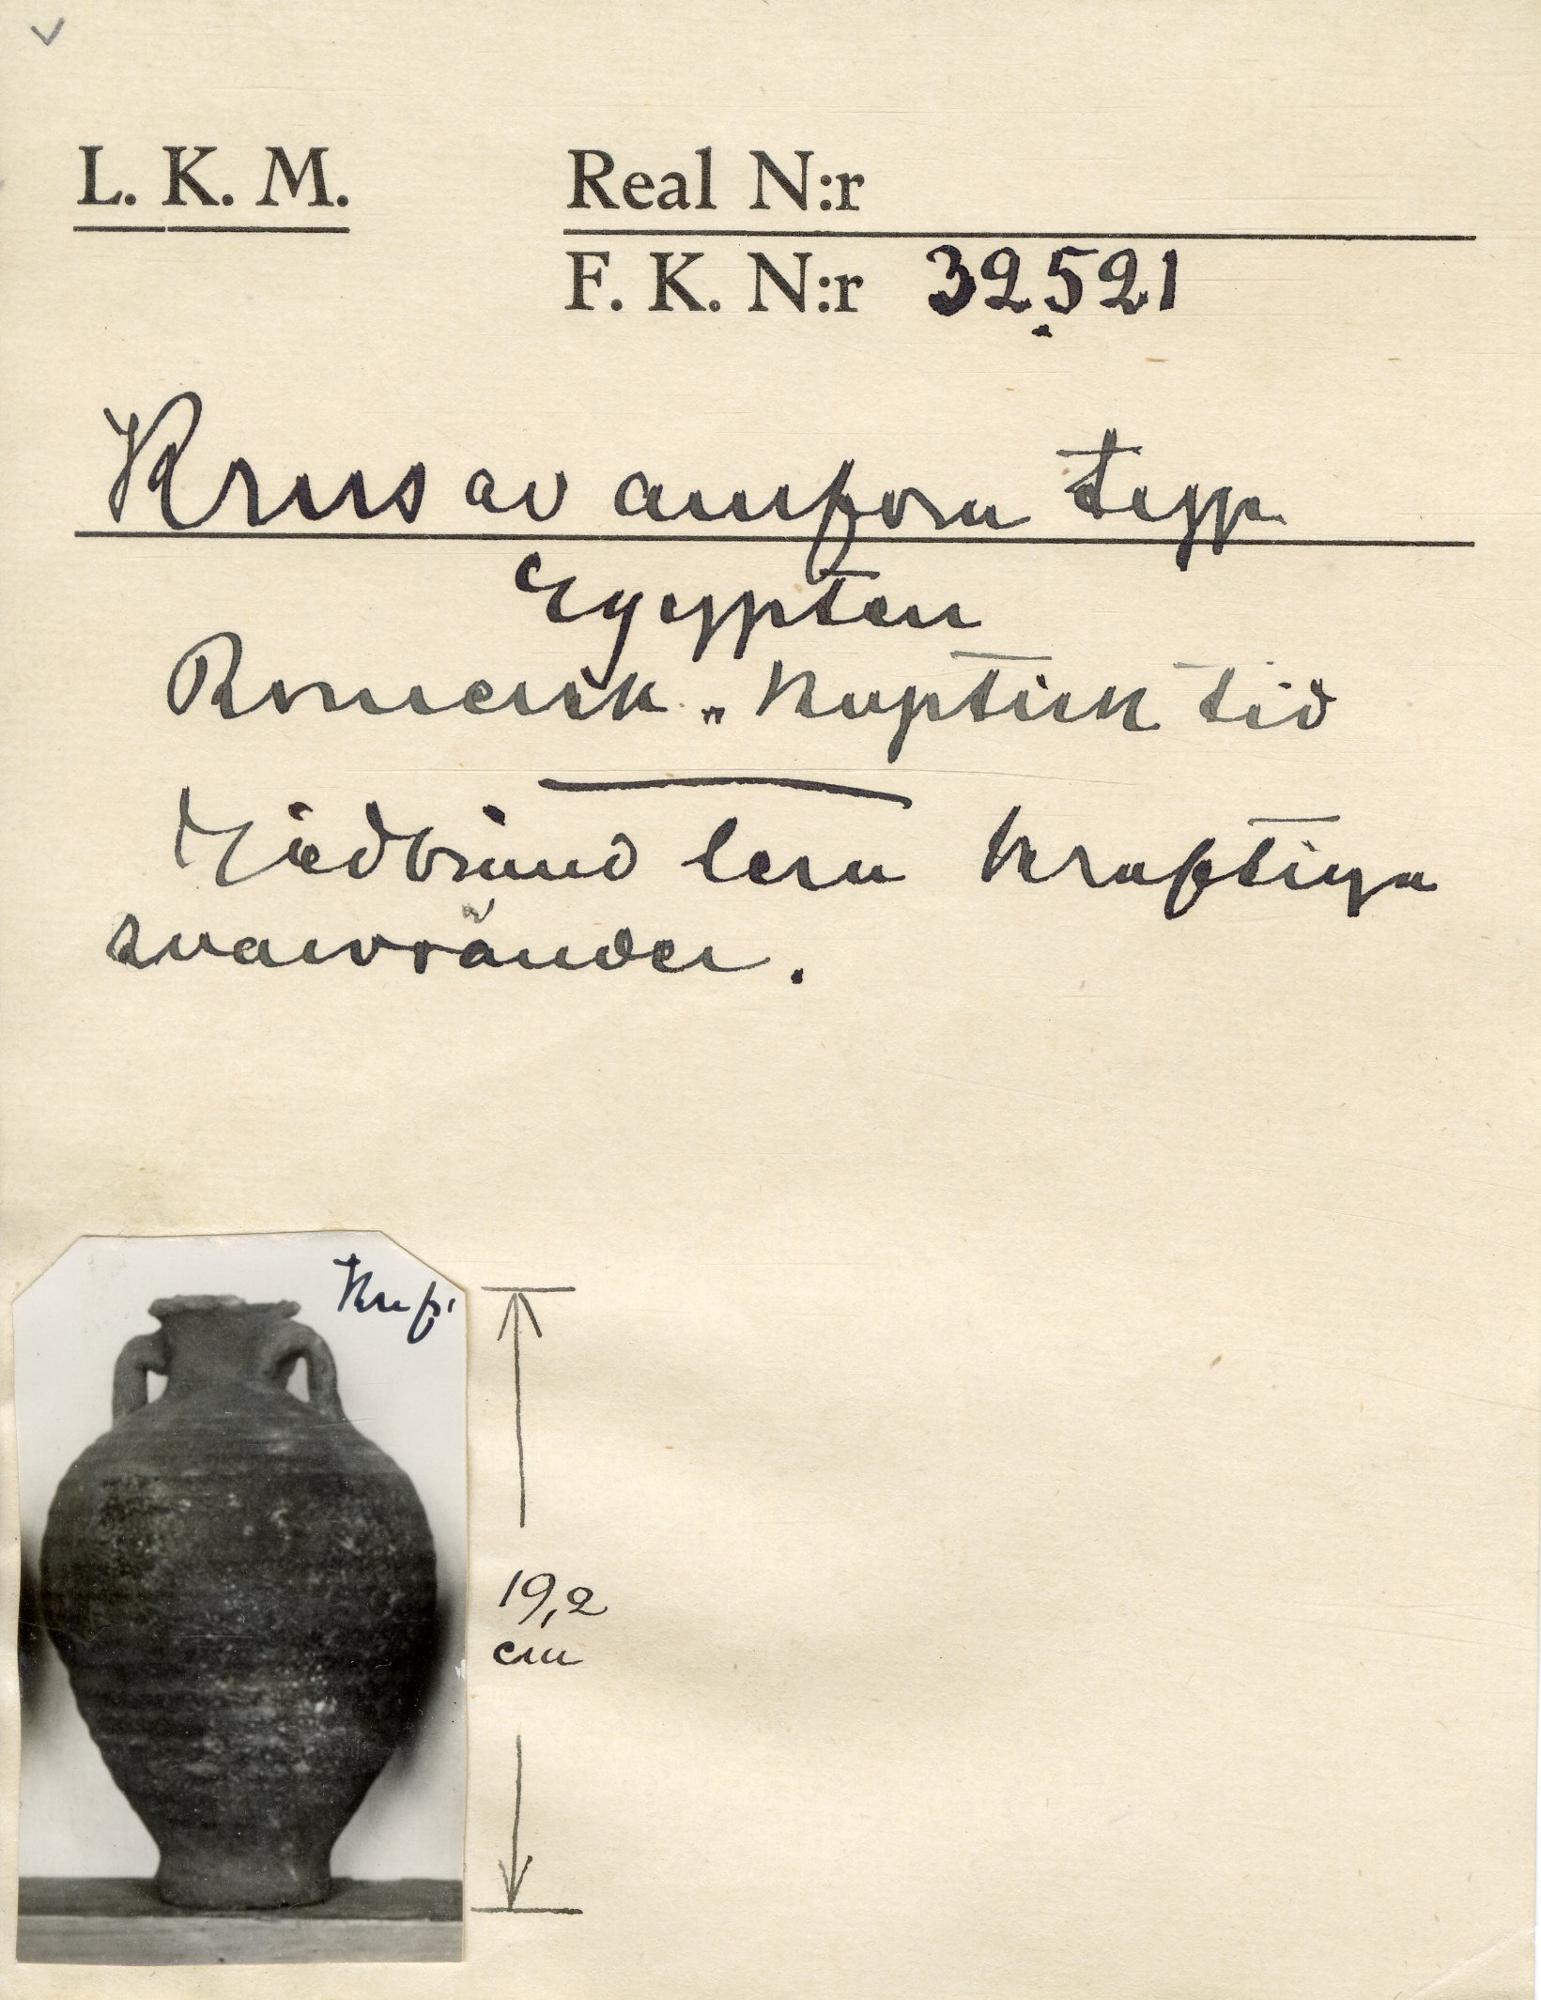 L. K. M.
Real N:r
F. K. N:r 32.521
Krus av amfora typ.
Egypten
Romersk - Koptisk tid
Hårdbränd lera kraftiga
svarvränder.
19,2
cm